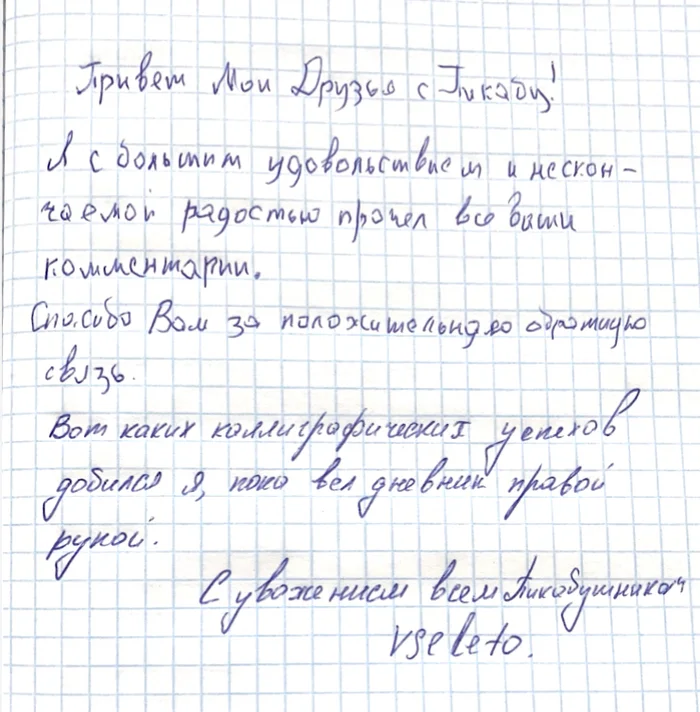 Привет Мои Друзья с Пикабу!
Я с большим удовольствием и нескон-
чаемой радостью прочел все Ваши
комментарии.
Спасибо Вам за положительную обратную
связь.
Вот каких каллиграфических успехов
добился я, пока вел дневник правой
рукой.
С уважением всем Пикабушникам
vseleto.